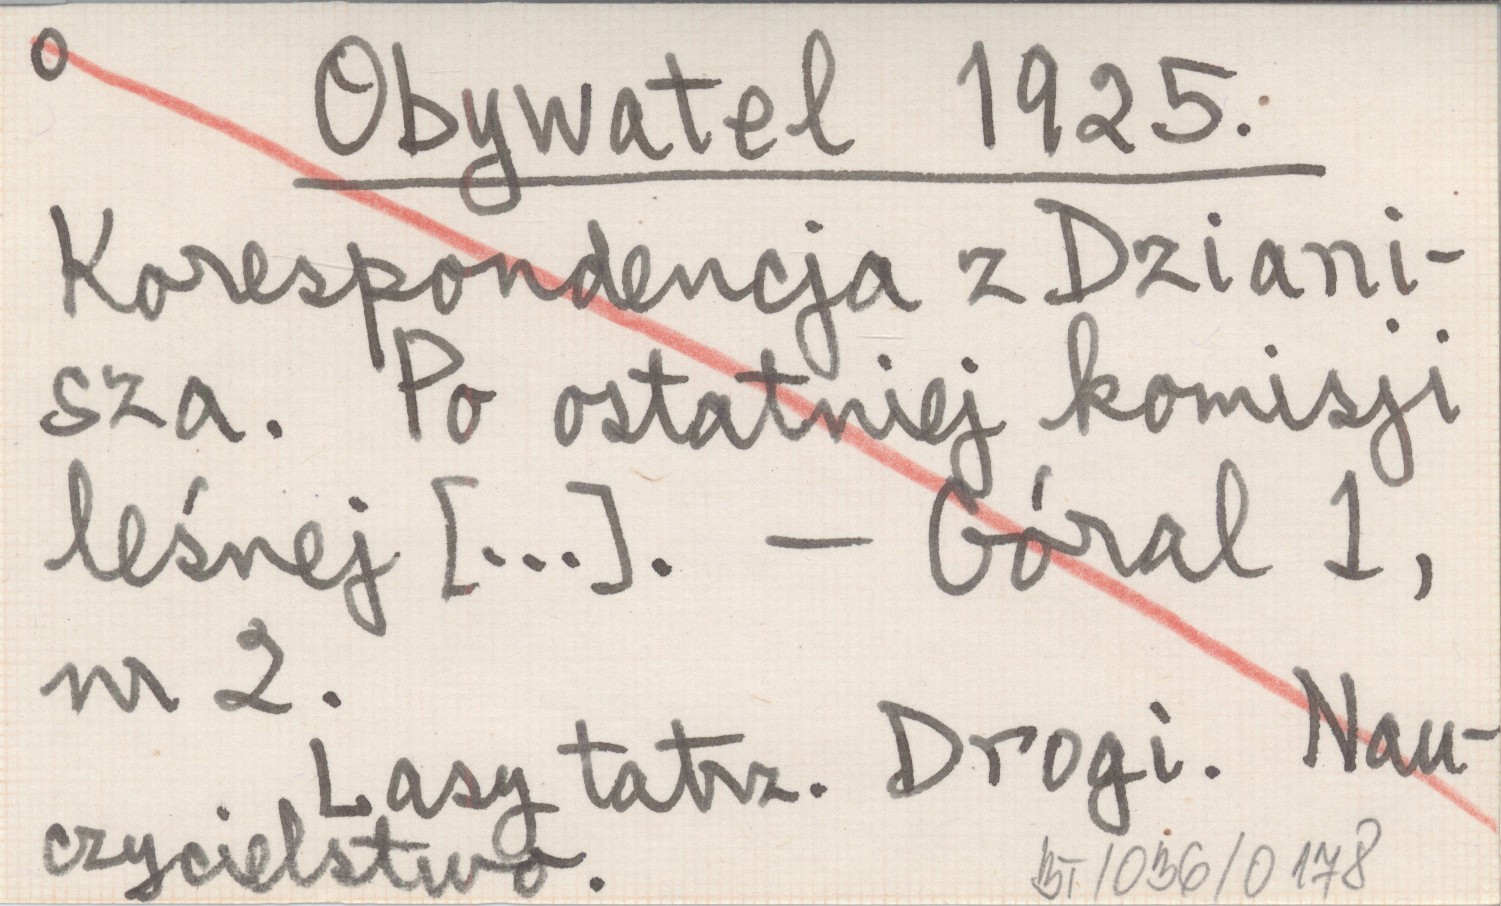 o
Obywatel 1925.
Korespondencja z Dziani-
sza. Po ostatniej komisji
leśnej [...]. — Góral 1,
nr 2.
Lasy tatrz. Drogi. Nau-
czycielstwo.
BT/036/0178